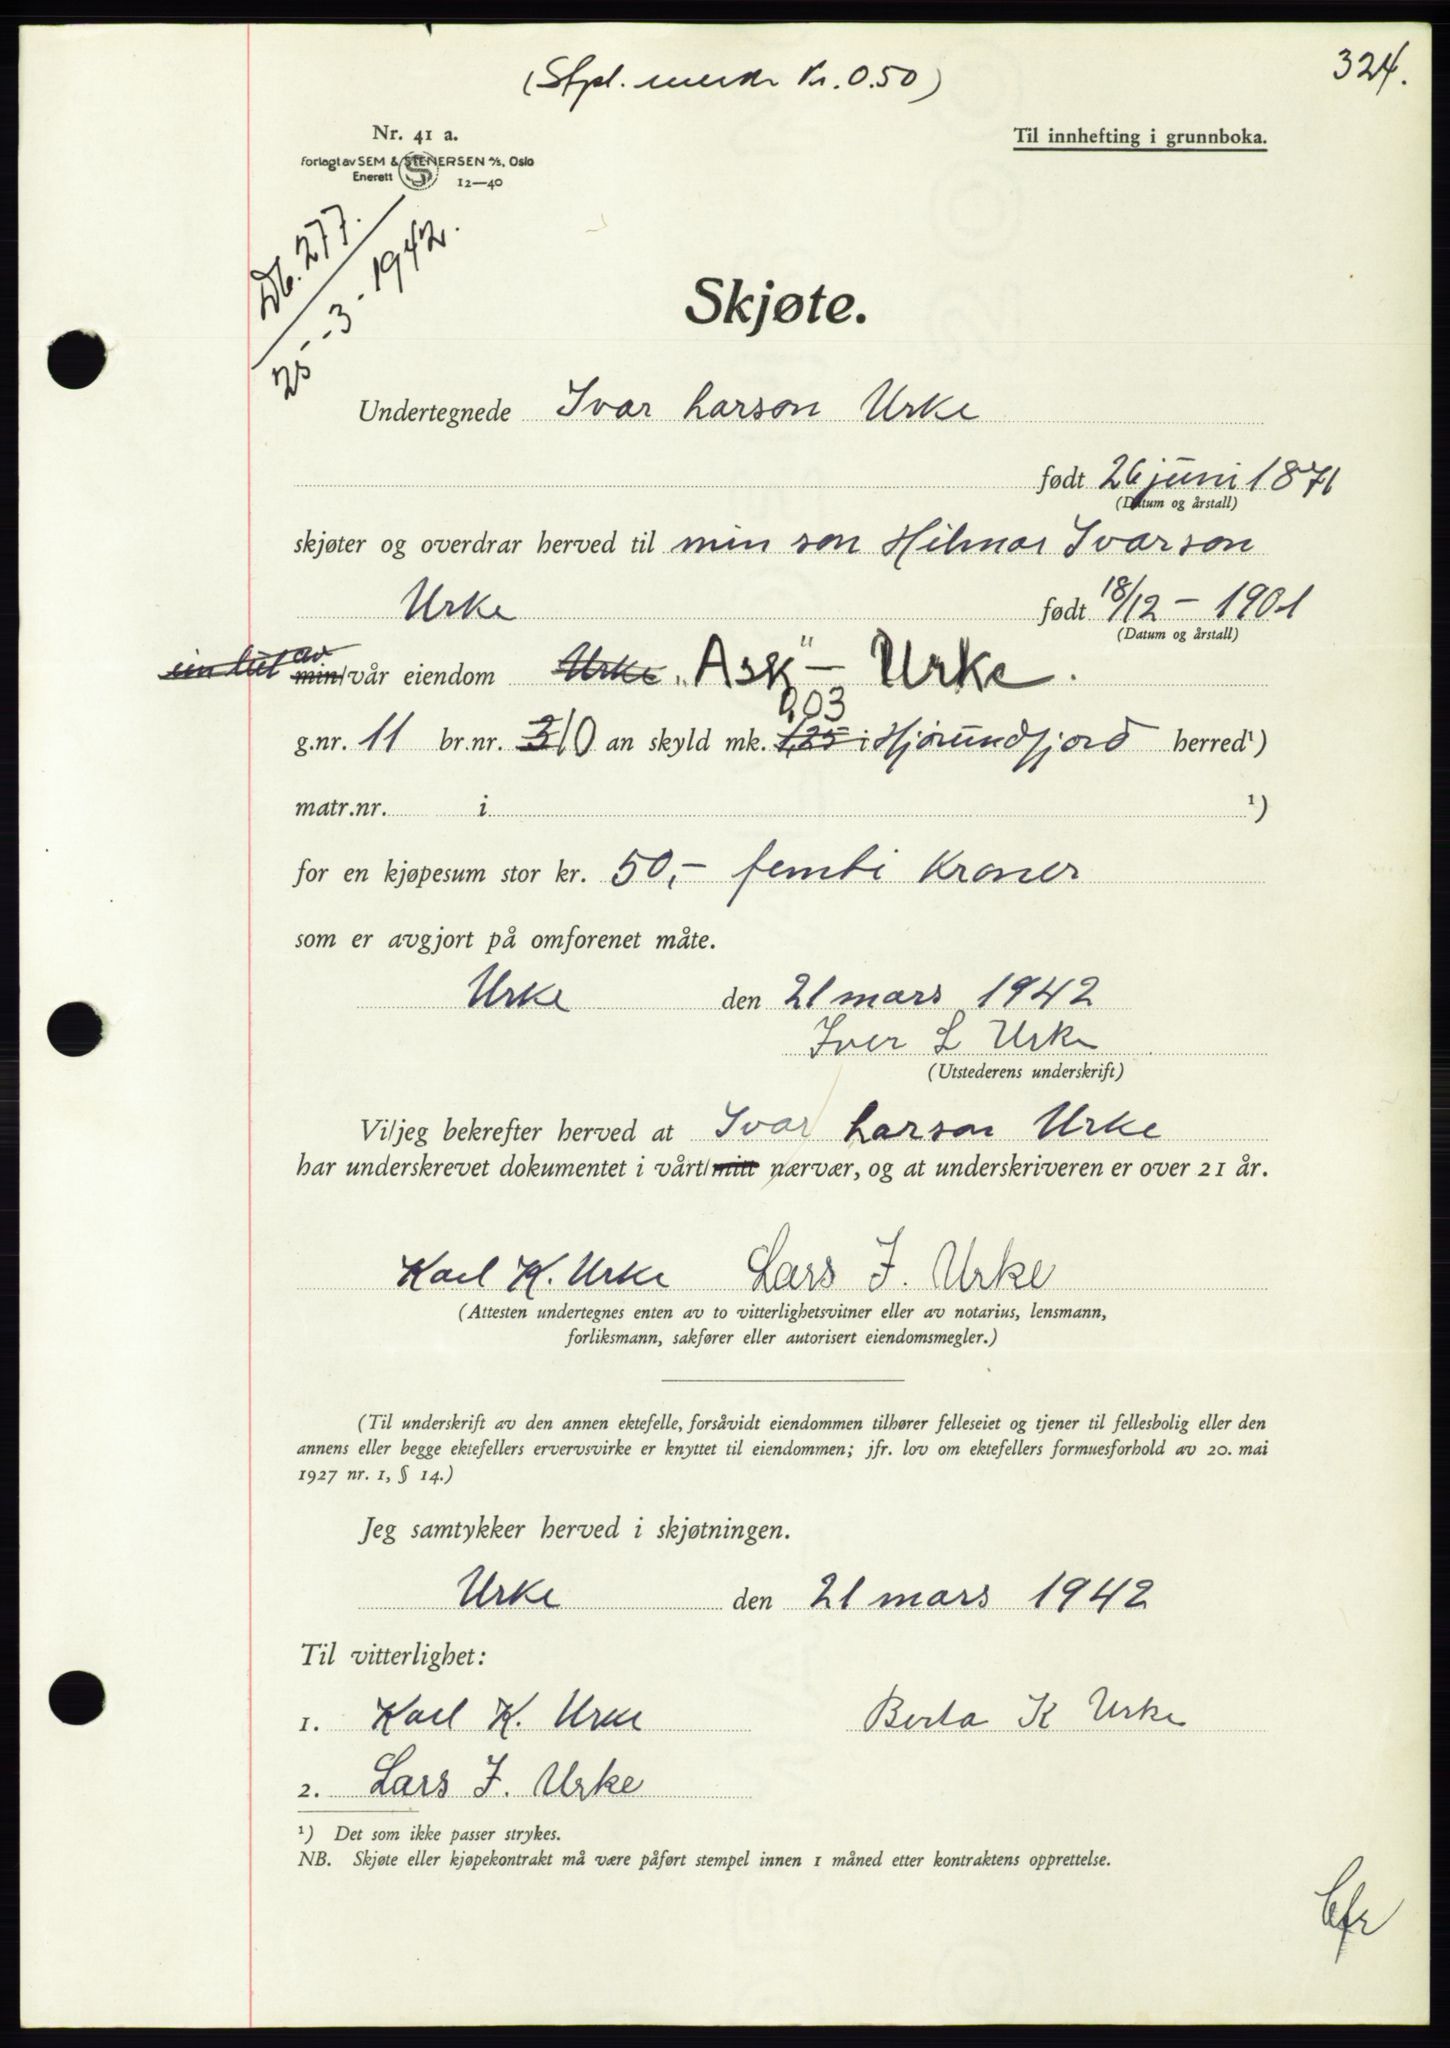 324.
(Stpl. merke Kr. 0.50)
Nr. 41 a.
Forlagt av SEM & STENERSEN A/S, Oslo
Enerett 12—40
Til innhefting i grunnboka.
Db. 277.
25-3-1942.
Skjøte.
Undertegnede Ivar Larson Urke
født 26 juni 1871
(Datum og årstall)
skjøter og overdrar herved til min son Hilmar Ivarson
Urke født 18/12 - 1901
(Datum og årstall)
ein lut av min/vår eiendom Urke „Ask" - Urke.
0,03
g.nr. 11 br.nr. 3 10 an skyld mk. 1,25 i Hjørundfjord herred¹)
matr.nr. i ¹)
for en kjøpesum stor kr. 50,- femti kroner
som er avgjort på omforenet måte.
Urke den 21 mars 1942
Iver L Urke
(Utstederens underskrift)
Vi/jeg bekrefter herved at Ivar Larson Urke
har underskrevet dokumentet i vårt/mitt nærvær, og at underskriveren er over 21 år.
Karl K. Urke Lars J. Urke
(Attesten undertegnes enten av to vitterlighetsvitner eller av notarius, lensmann,
forliksmann, sakfører eller autorisert eiendomsmegler.)
(Til underskrift av den annen ektefelle, forsåvidt eiendommen tilhører felleseiet og tjener til fellesbolig eller den
annens eller begge ektefellers ervervsvirke er knyttet til eiendommen; jfr. lov om ektefellers formuesforhold av 20. mai
1927 nr. 1, § 14.)
Jeg samtykker herved i skjøtningen.
Urke den 21 mars 1942
Til vitterlighet:
1. Karl K. Urke Berta K Urke
2. Lars J. Urke
¹) Det som ikke passer strykes.
NB. Skjøte eller kjøpekontrakt må være påført stempel innen 1 måned etter kontraktens opprettelse.